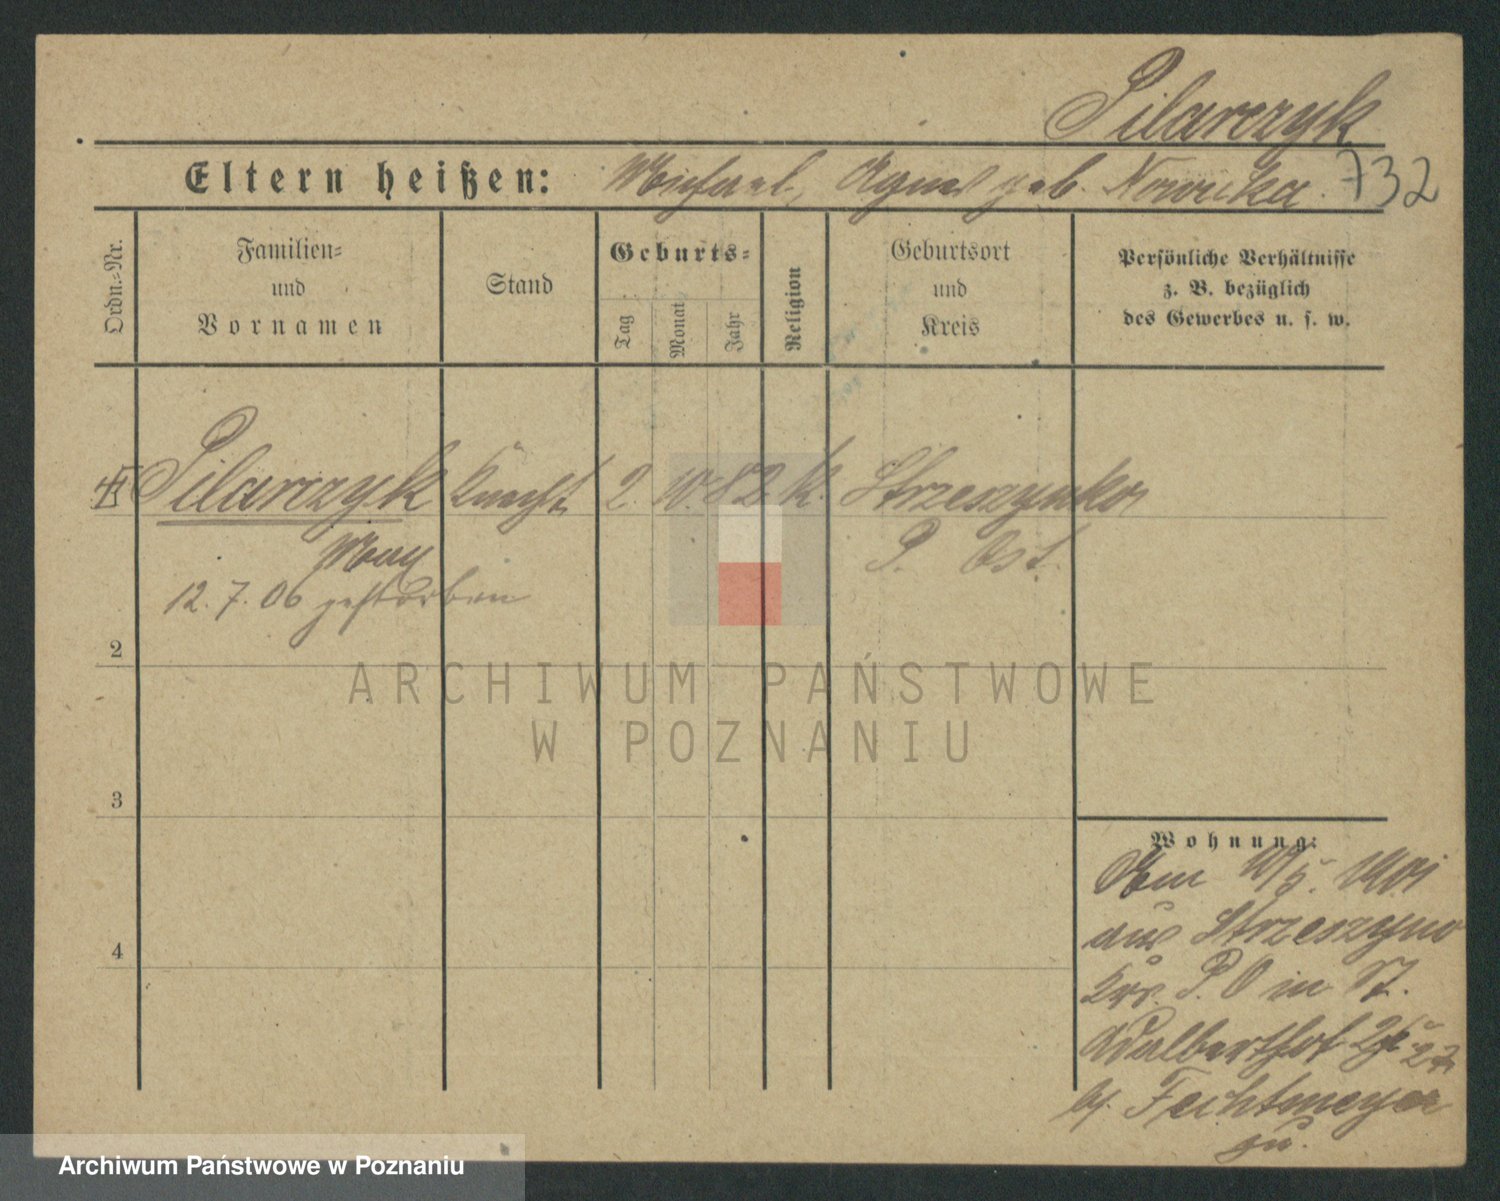 Pilarczyk
Eltern heißen: Michael, Agnes geb. Nowicka. 732
Ordn.=Nr.
Familien=
und
Vornamen
Stand
Geburts=
Tag
Monat
Jahr
Religion
Geburtsort
und
Kreis
Persönliche Verhältnisse
z. B. bezüglich
des Gewerbes u. s. w.
Pilarczyk Knecht 2. 10. 82 k. Strzeszynko
P. Ost.
Max
12. 7. 06 gestorben
2
3
4
Wohnung:
Am 10/5. 1901
aus Strzeszyno
Krs. P. O in St.
Adalberthof
bei Fechtmeyer
zu.
ARCHIWUM PAŃSTWOWE
W POZNANIU
Archiwum Państwowe w Poznaniu